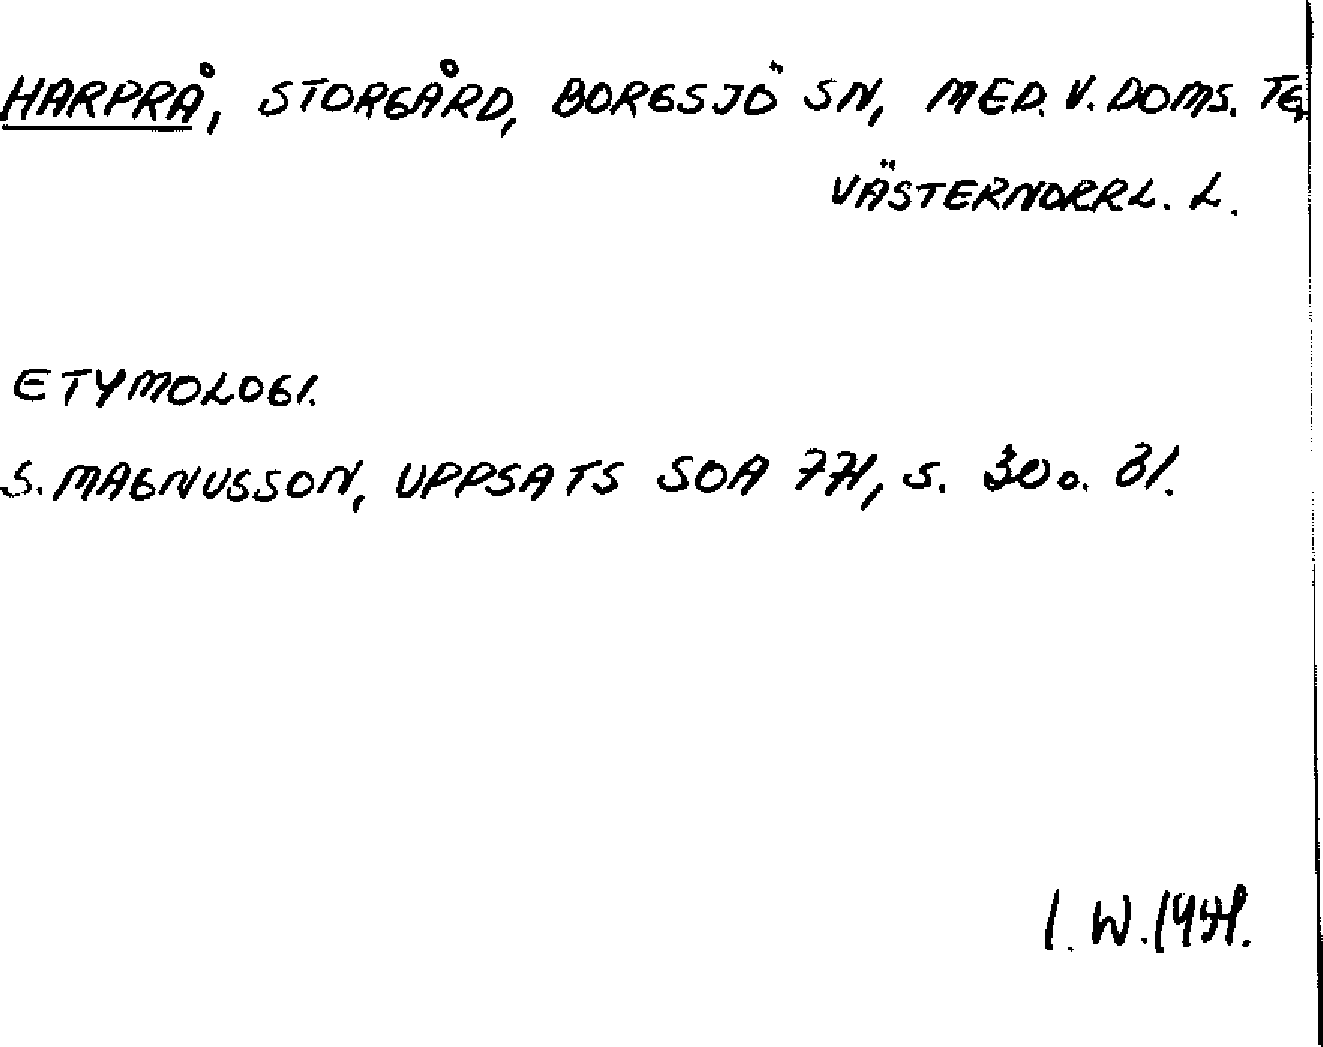 HARPRÅ, STORGÅRD, BORGSJÖ SN, MED. V. DOMS. TG,
VÄSTERNORRL. L.
ETYMOLOGI.
S. MAGNUSSON, UPPSATS SOA 771, S. 30 o. 31.
I. W. 1971.